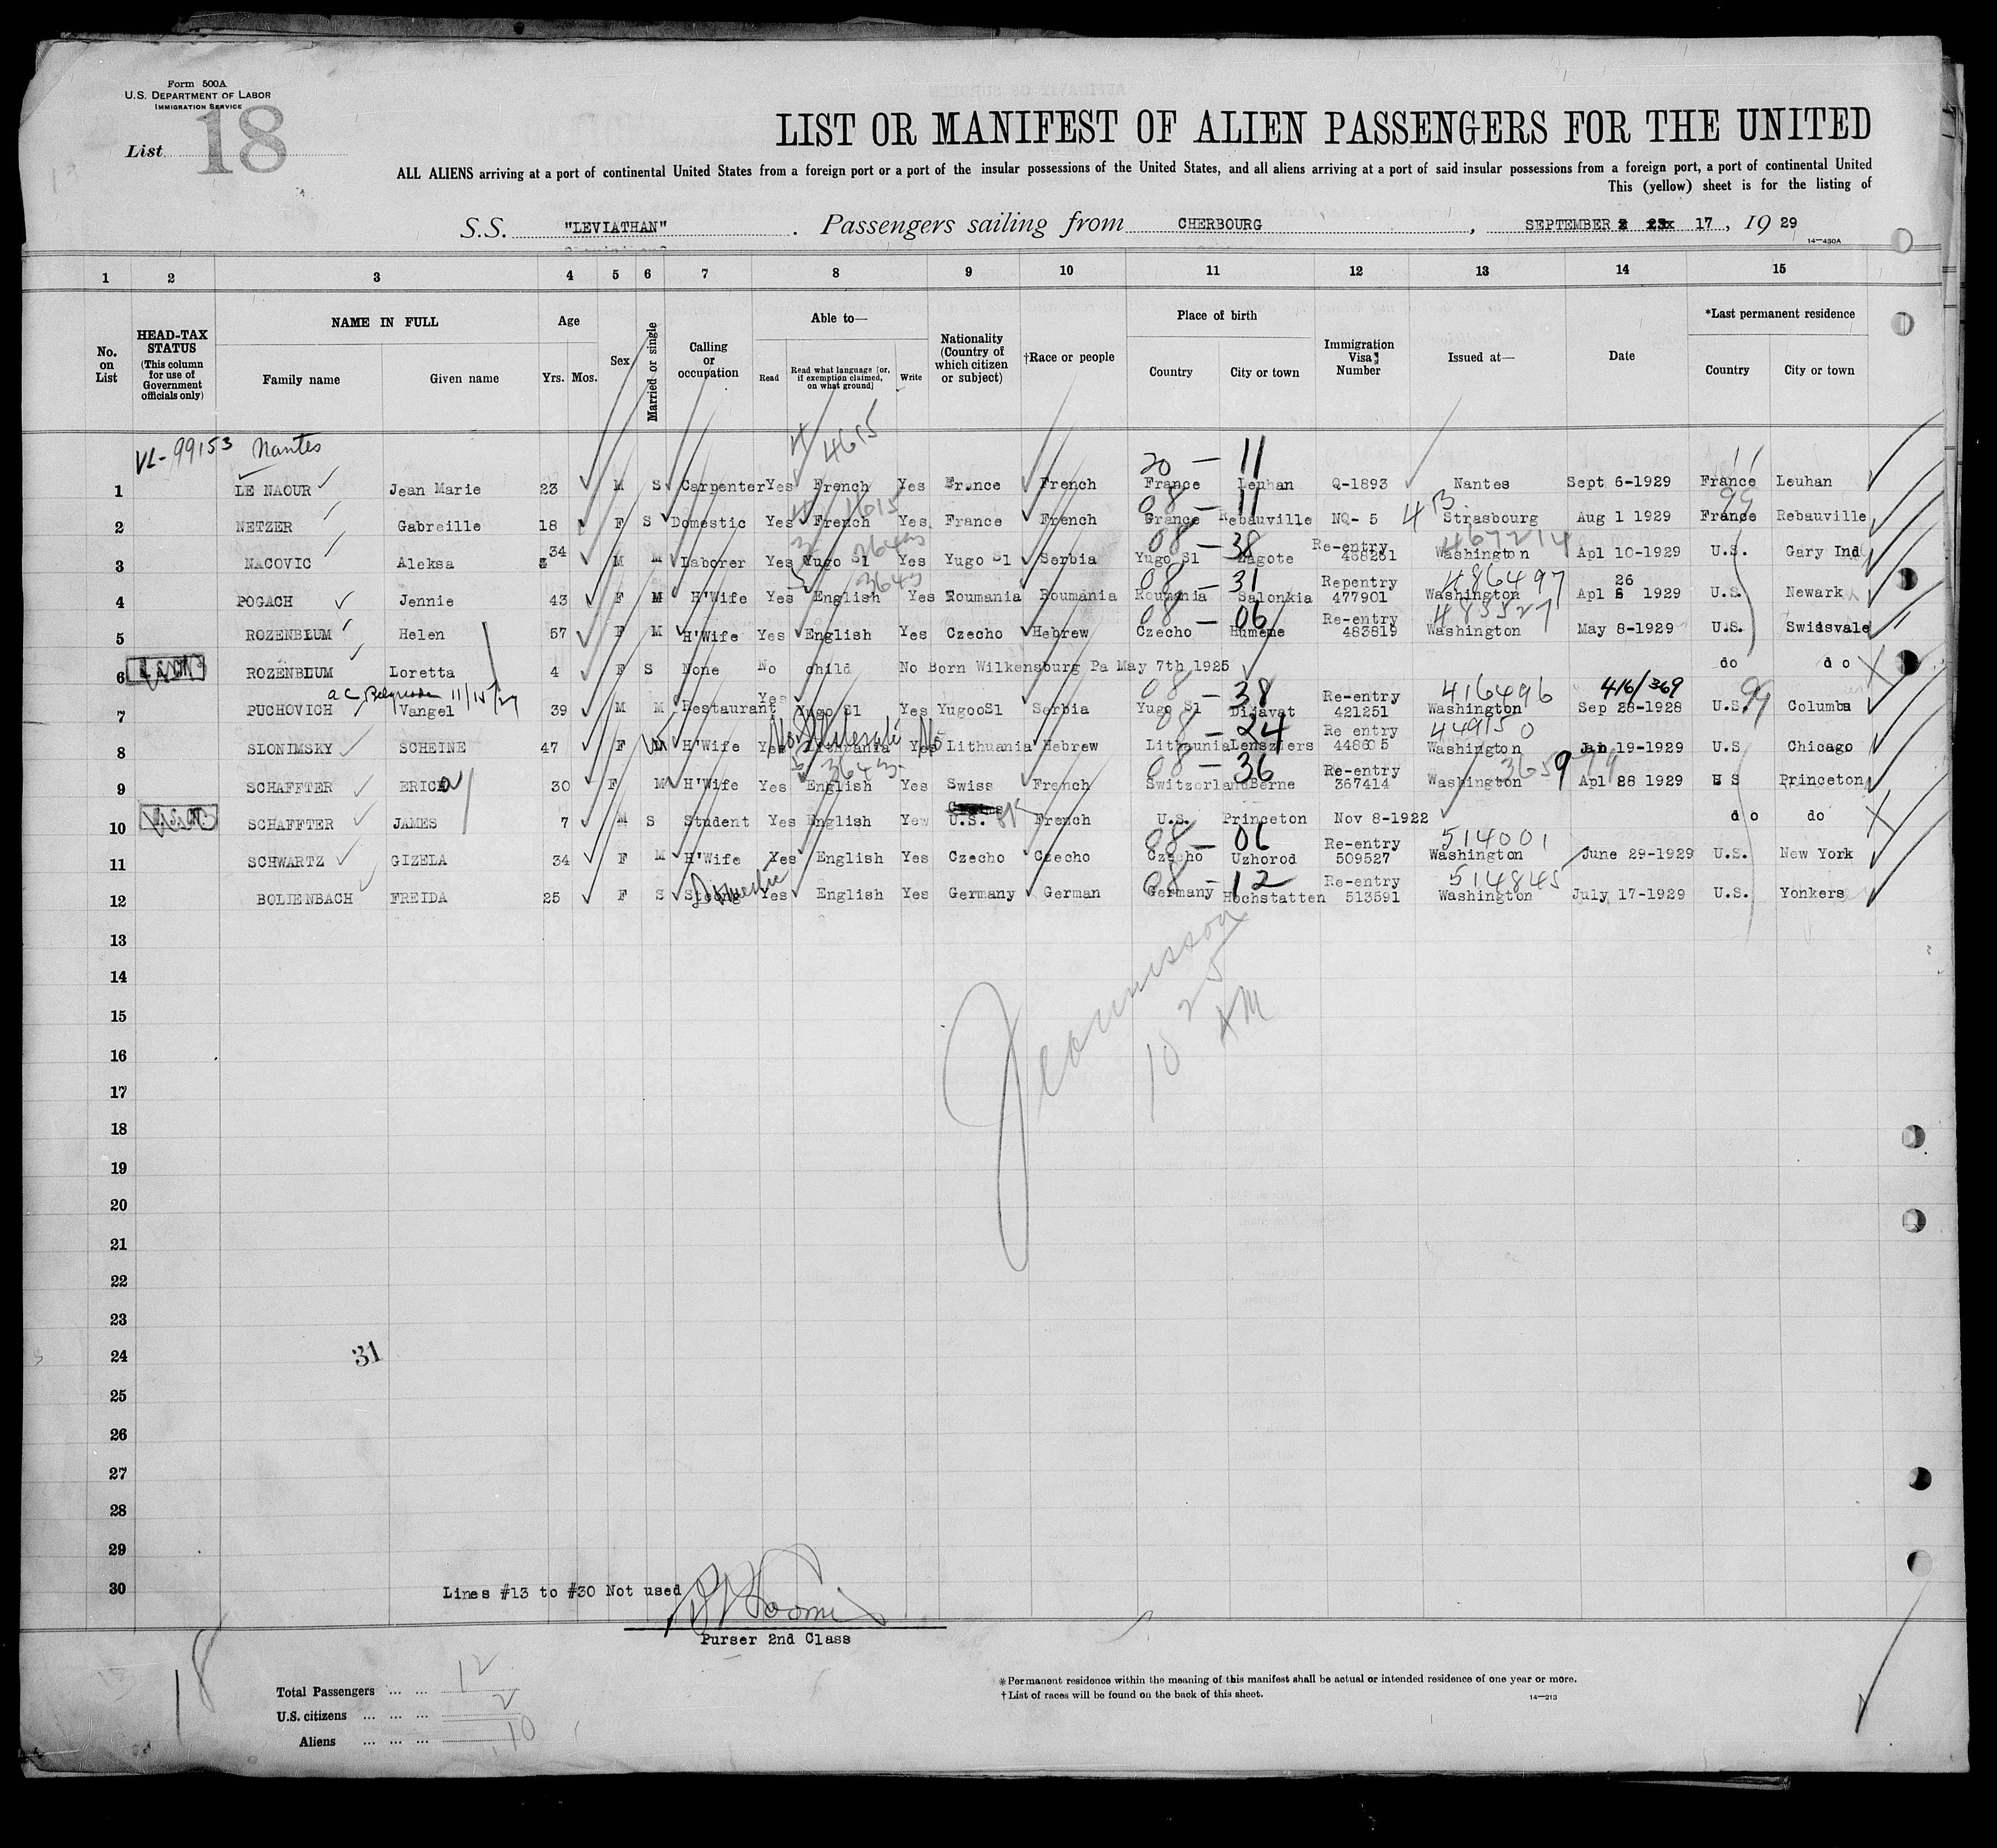 Form 500A
U.S. DEPARTMENT OF LABOR
IMMIGRATION SERVICE
List 18
LIST OR MANIFEST OF ALIEN PASSENGERS FOR THE UNITED
ALL ALIENS arriving at a port of continental United States from a foreign port or a port of the insular possessions of the United States, and all aliens arriving at a port of said insular possessions from a foreign port, a port of continental United
This (yellow) sheet is for the listing of
S.S. "LEVIATHAN" . Passengers sailing from CHERBOURG , SEPTEMBER 17 , 1929
14—430A
1 2 3 4 5 6 7 8 9 10 11 12 13 14 15
No. on List
HEAD-TAX STATUS (This column for use of Government officials only)
NAME IN FULL Family name Given name
Age Yrs. Mos.
Sex
Married or single
Calling or occupation
Able to— Read Read what language [or, if exemption claimed, on what ground] Write
Nationality (Country of which citizen or subject)
†Race or people
Place of birth Country City or town
Immigration Visa Number
Issued at—
Date
*Last permanent residence Country City or town
VL-99153 Nantes 4615 20 — 11 11
1 LE NAOUR Jean Marie 23 M S Carpenter Yes French Yes France French France Leuhan Q-1893 Nantes Sept 6-1929 France Leuhan
1615 08 — 11 99
2 NETZER Gabreille 18 F S Domestic Yes French Yes France French Grance Rebauville NQ- 5 Strasbourg Aug 1 1929 France Rebauville
08 — 38 467214
3 NACOVIC Aleksa 34 M M Laborer Yes Yugo Sl Yes Yugo Sl Serbia Yugo Sl Lagote Re-entry 458251 Washington Apl 10-1929 U.S. Gary Ind
3643 08 — 31 486497
4 POGACH Jennie 43 F M H'Wife Yes English Yes Roumania Roumania Roumania Salonkia Repentry 477901 Washington Apl 26 1929 U.S. Newark
08 — 06 483527
5 ROZENBLUM Helen 57 F M H'Wife Yes English Yes Czecho Hebrew Czecho Humene Re-entry 483819 Washington May 8-1929 U.S. Swissvale
6 ROZENBLUM Loretta 4 F S None No child No Born Wilkensburg Pa May 7th 1925 do do
11/15/27 08 — 38 416496 416/369 99
7 PUCHOVICH Vangel 39 M M Restaurant Yes Yugo Sl Yes YugooSl Serbia Yugo Sl Dijavat Re-entry 421251 Washington Sep 28-1928 U.S. Columbs
No No 08 — 24 449150
8 SLONIMSKY SCHEINE 47 F M H'Wife Yes Lithuania Yes Lithuania Hebrew Lithunia Lenszlers Re entry 448605 Washington Jan 19-1929 U.S Chicago
3643 08 — 36
9 SCHAFFTER ERICA 30 F M H'Wife Yes English Yes Swiss French Switzorland Berne Re-entry 367414 Washington Apl 28 1929 U S Princeton
10 SCHAFFTER JAMES 7 M S Student Yes English Yew U.S. French U.S. Princeton Nov 8-1922 do do
08 — 06 514001
11 SCHWARTZ GIZELA 34 F M H'Wife Yes English Yes Czecho Czecho Czecho Uzhorod Re-entry 509527 Washington June 29-1929 U.S. New York
Domestic 08 — 12 514845
12 BOLIENBACH FREIDA 25 F S Yes English Yes Germany German Germany Hochstatten Re-entry 513591 Washington July 17-1929 U.S. Yonkers
13
14
15
16
17
18
19
20
21
22
23
24
25
26
27
28
29
30
10 25 AM
31
Lines #13 to #30 Not used
Purser 2nd Class
18
Total Passengers ... ... 12
U.S. citizens ... ... ... 2
Aliens ... ... ... 10
*Permanent residence within the meaning of this manifest shall be actual or intended residence of one year or more.
†List of races will be found on the back of this sheet.
14—213